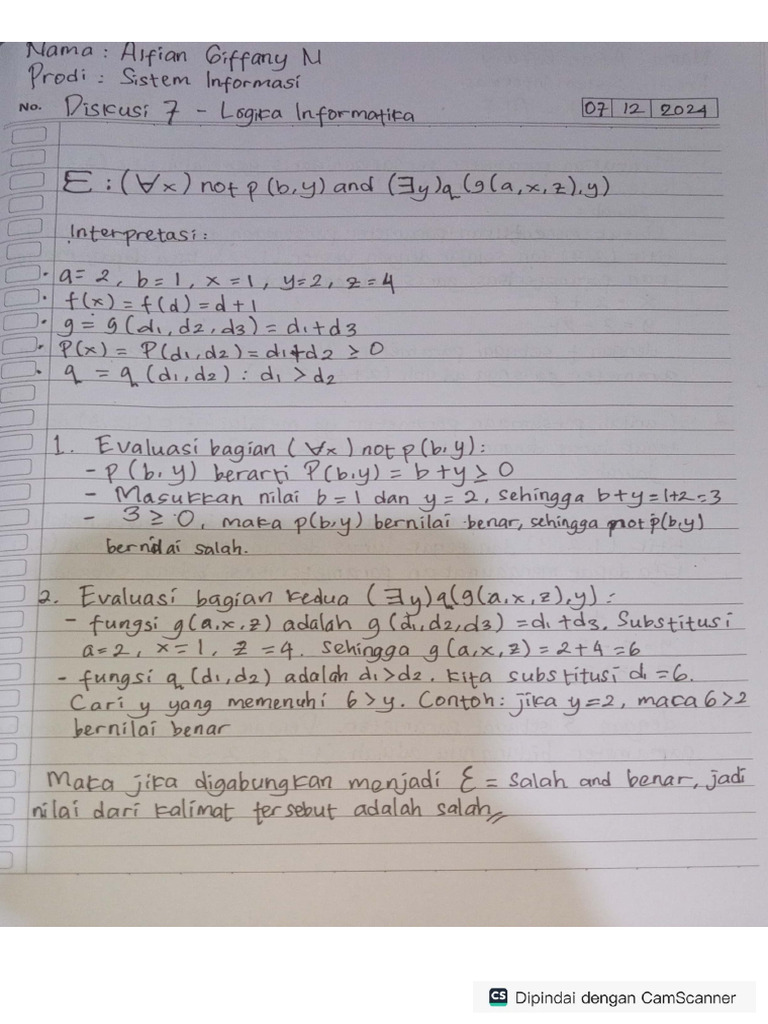 Nama : Alfian Giffany M
Prodi : Sistem Informasi
No. Diskusi 7 - Logika Informatika 07 | 12 | 2024
Ɛ : (∀x) not p (b, y) and (∃y) q (g(a, x, z), y)
Interpretasi :
· a = 2, b = 1, x = 1, y = 2, z = 4
· f(x) = f(d) = d + 1
· g = g(d1, d2, d3) = d1 + d3
· P(x) = P(d1, d2) = d1 + d2 ≥ 0
· q = q (d1, d2) : d1 > d2
1. Evaluasi bagian (∀x) not p (b, y) :
- p (b, y) berarti P(b, y) = b + y ≥ 0
- Masukkan nilai b = 1 dan y = 2, sehingga b + y = 1+2 = 3
- 3 ≥ 0, maka p(b, y) bernilai benar, sehingga not p(b, y)
bernilai salah.
2. Evaluasi bagian kedua (∃y) q (g(a, x, z), y) :
- fungsi g(a, x, z) adalah g (d1, d2, d3) = d1 + d3. Substitusi
a = 2, x = 1, z = 4. Sehingga g (a, x, z) = 2 + 4 = 6
- fungsi q (d1, d2) adalah d1 > d2. kita substitusi d1 = 6.
Cari y yang memenuhi 6 > y. Contoh : jika y = 2, maca 6 > 2
bernilai benar
Maka jika digabungkan menjadi Ɛ = salah and benar, jadi
nilai dari kalimat tersebut adalah salah,,
CS Dipindai dengan CamScanner